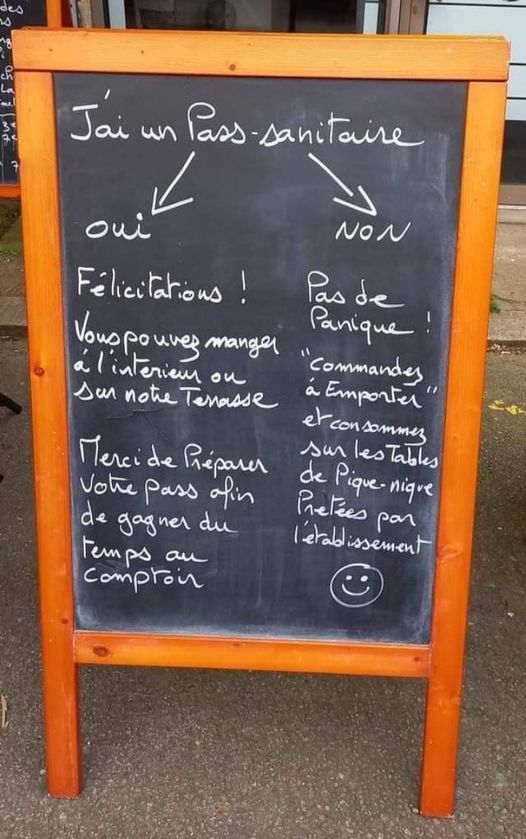 J'ai un Pass-sanitaire
oui
Félicitations !
Vous pouvez manger
à l'interieur ou
sur notre Terrasse
Merci de Préparer
Votre pass afin
de gagner du
temps au
comptoir
NON
Pas de
Panique !
"Commandez
à Emporter"
et consommez
sur les Tables
de Pique-nique
Pretées par
l'établissement